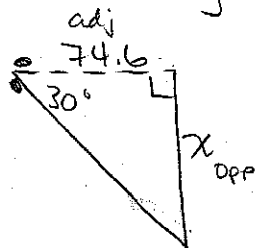 adj
74.6
30°
x
opp